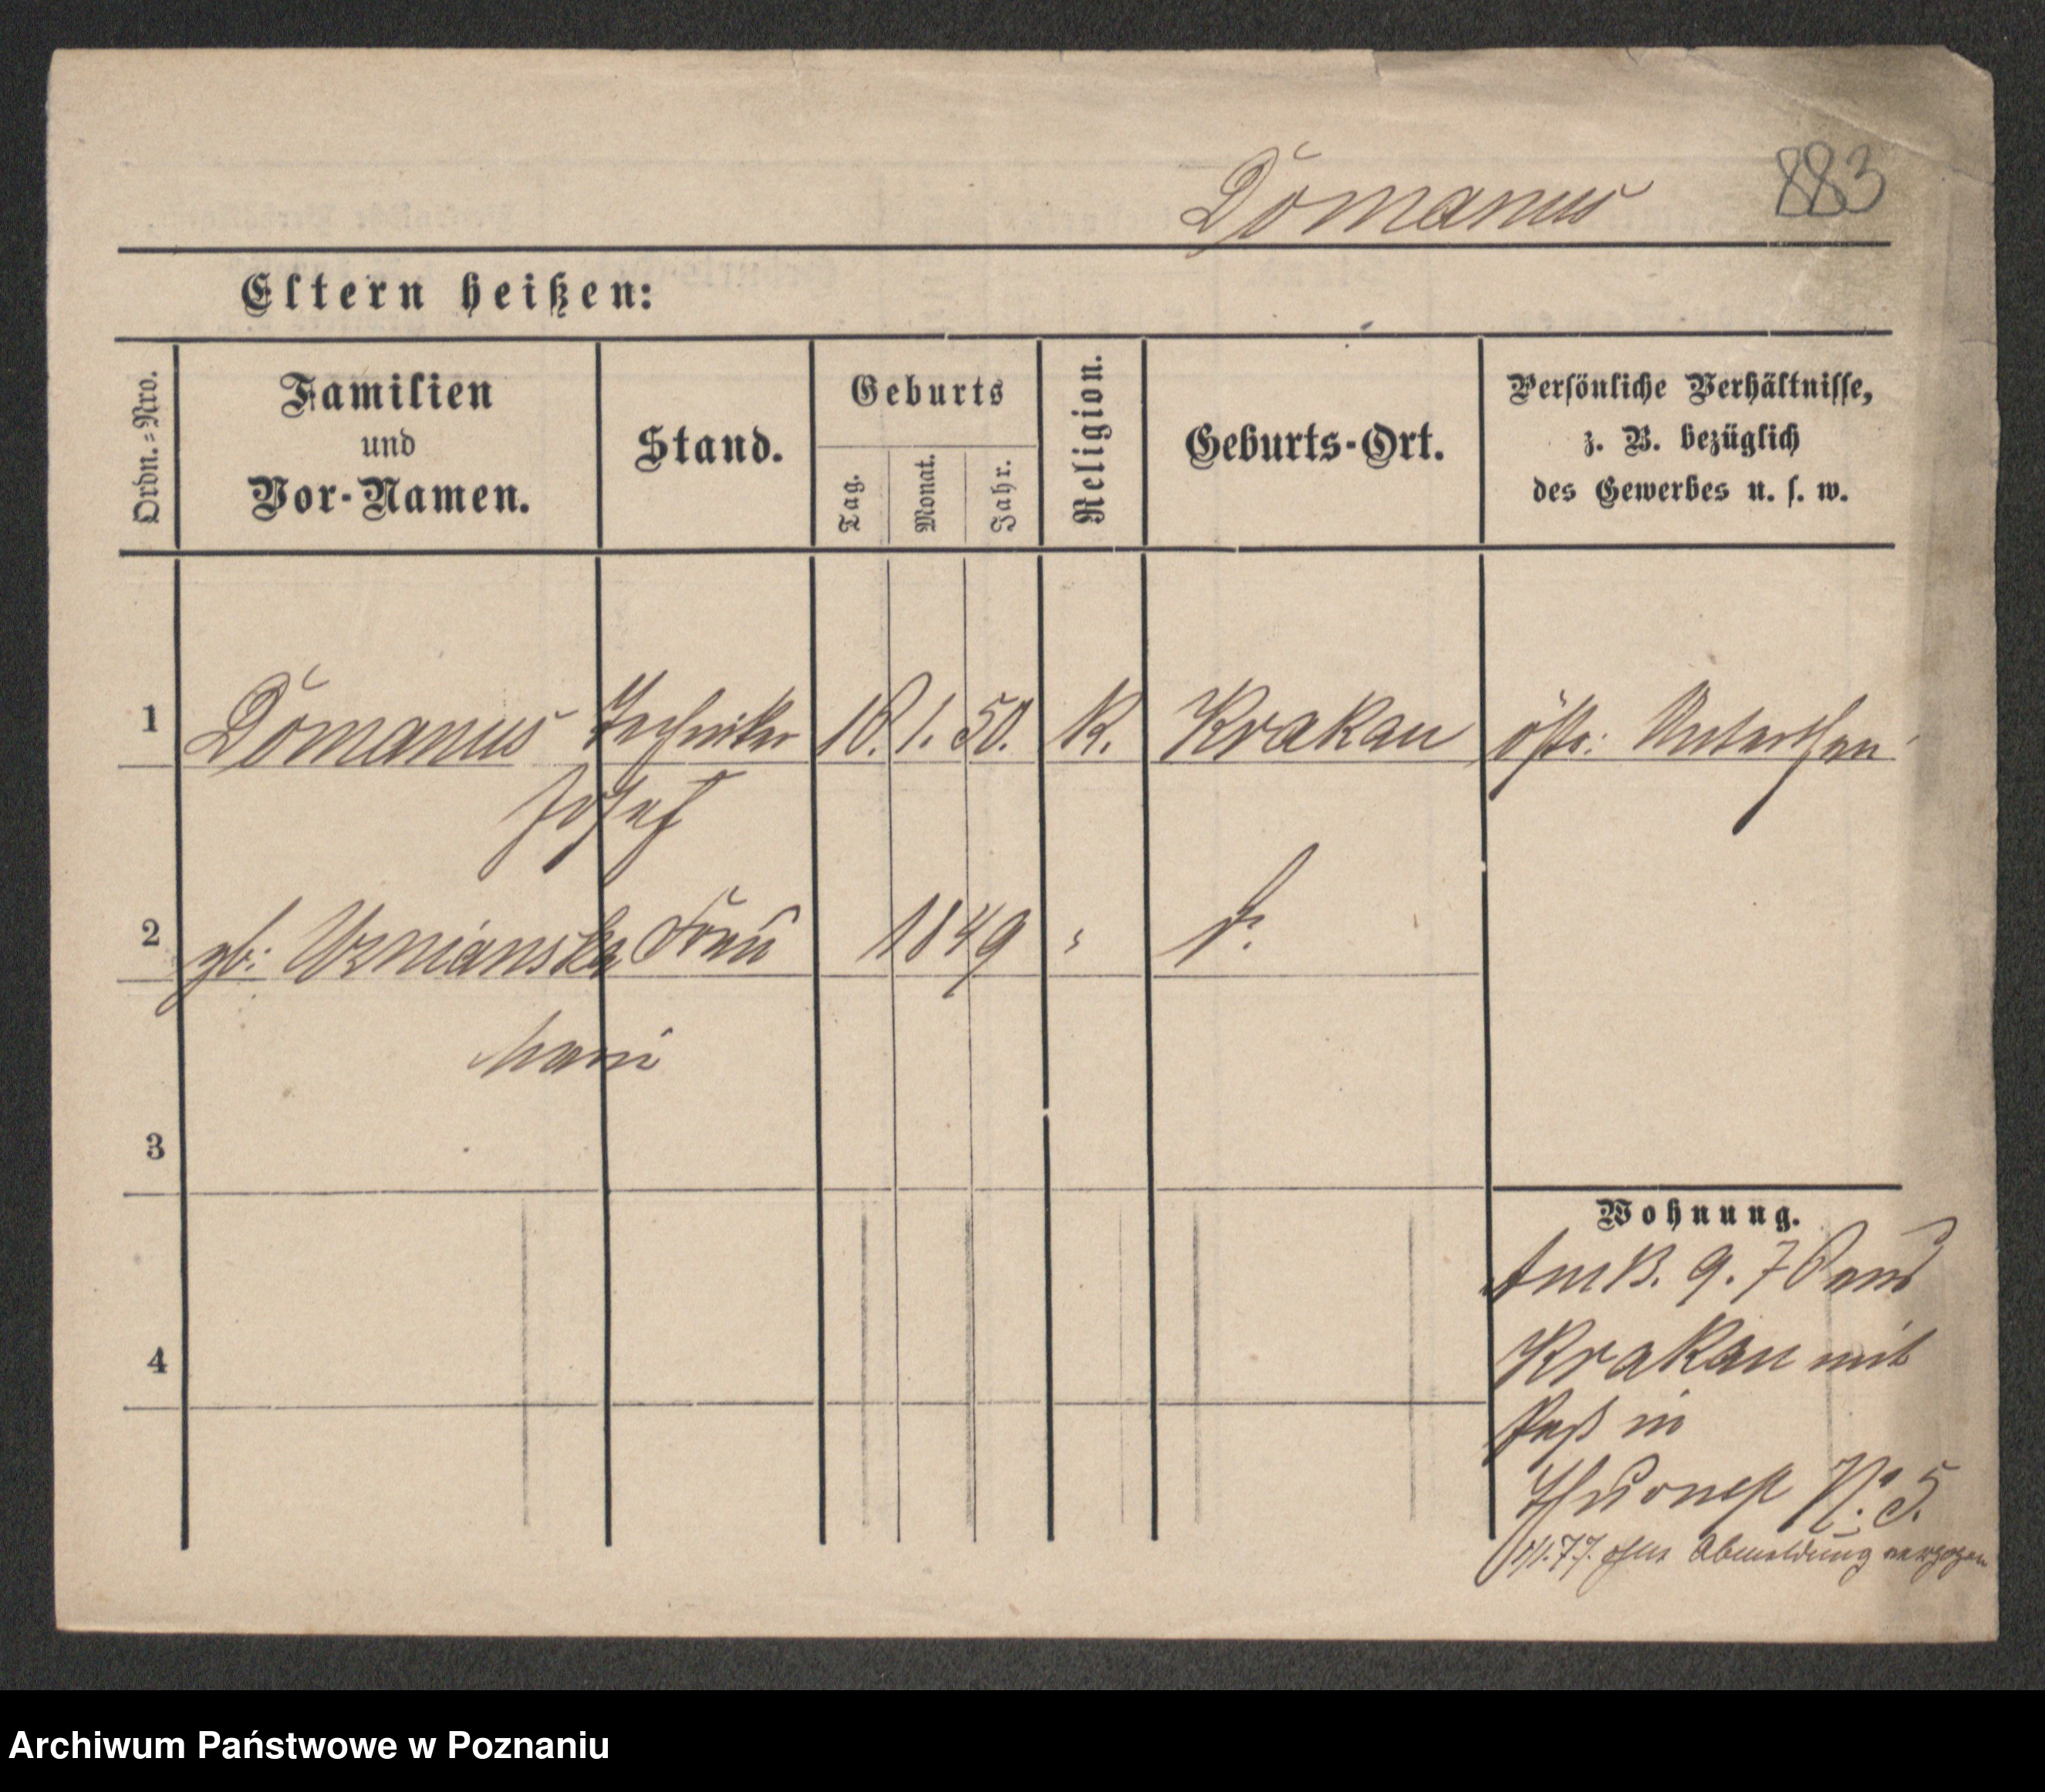 Domanus 883
Eltern heißen:
Ordn.-Nro.
Familien
und
Vor-Namen.
Stand.
Geburts
Tag.
Monat.
Jahr.
Religion.
Geburts-Ort.
Persönliche Verhältnisse,
z. B. bezüglich
des Gewerbes u. s. w.
1 Domanus Techniker 18. 1. 50. K. Krakau östr: Unterthan
Josef
2 gb: Frau 1849 "
Mari
3
Wohnung.
Am 13. 9. 76 aus
Krakau mit
4
Paß in
N: 5.
1/1. 77. ohne Abmeldung verzogen
Archiwum Państwowe w Poznaniu